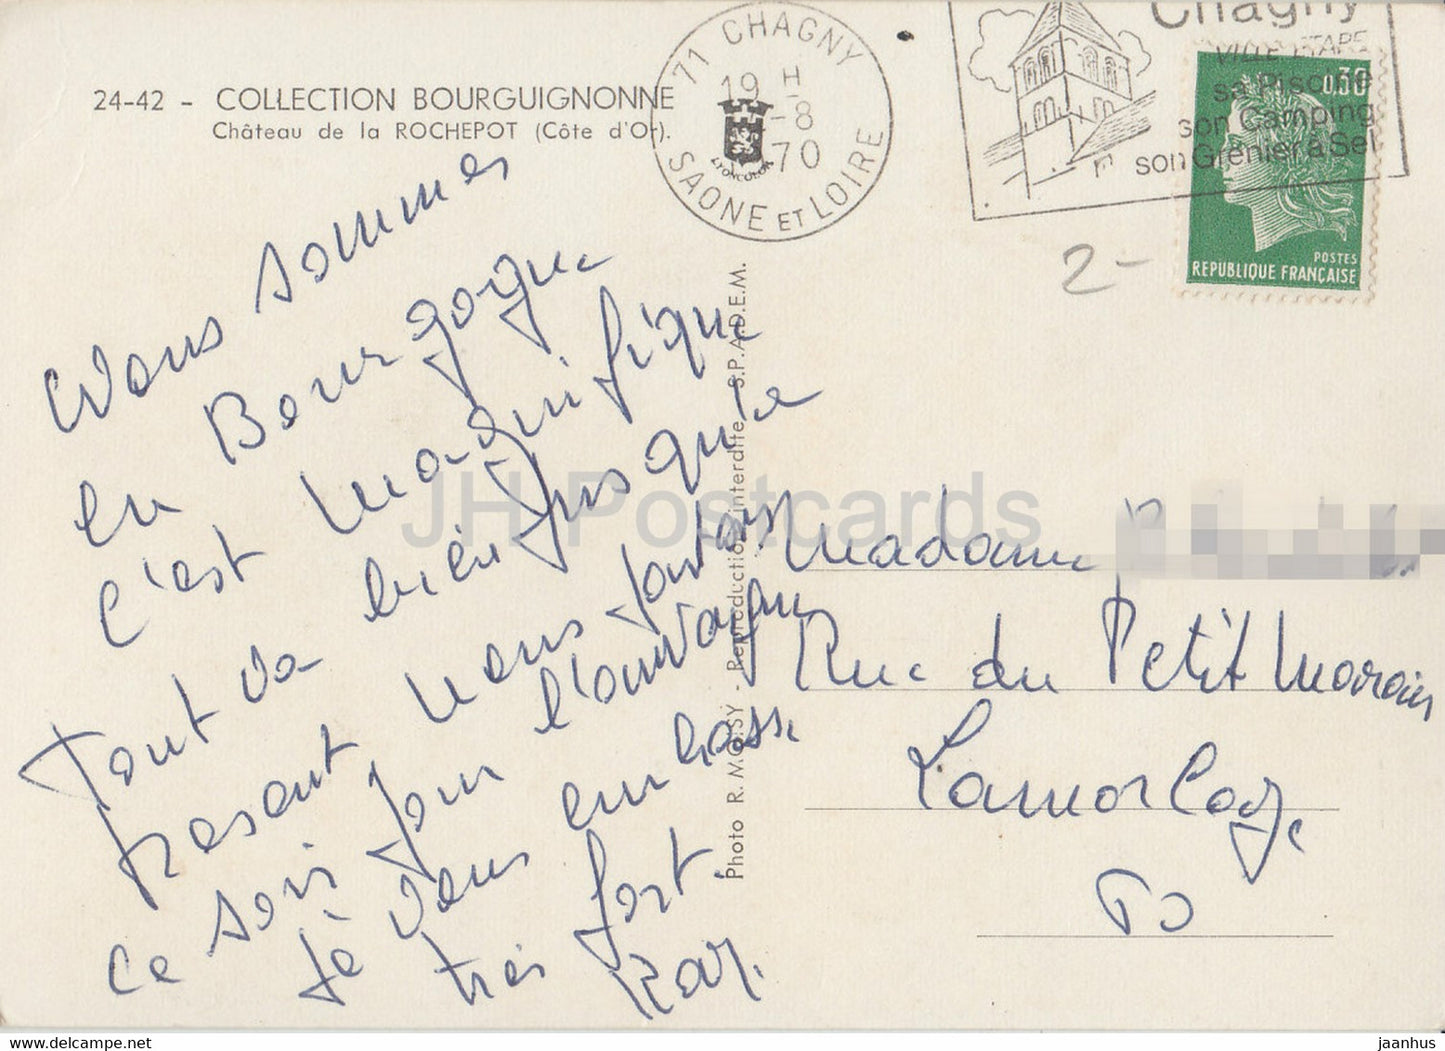 24-42 - COLLECTION BOURGUIGNONNE
Château de la ROCHEPOT (Côte d'Or).
71 CHAGNY
19 H
-8
1970
SAONE ET LOIRE
LYONCOLOR
Chagny
VILLE ETAPE
sa Piscine
son Camping
son Grenier à Sel
0,30
POSTES
REPUBLIQUE FRANÇAISE
2-
Nous sommes
en Bourgogne
c'est magnifique
Tout va bien jusqu'à
présent, nous partons
ce soir pour l'auvergne
Je vous embrasse
très fort.
Photo R. MOISY - Reproduction interdite S.P.A.D.E.M.
Madame
Rue du Petit Marais
Lamorlaye
60
JH Postcards
jaanhus € EU